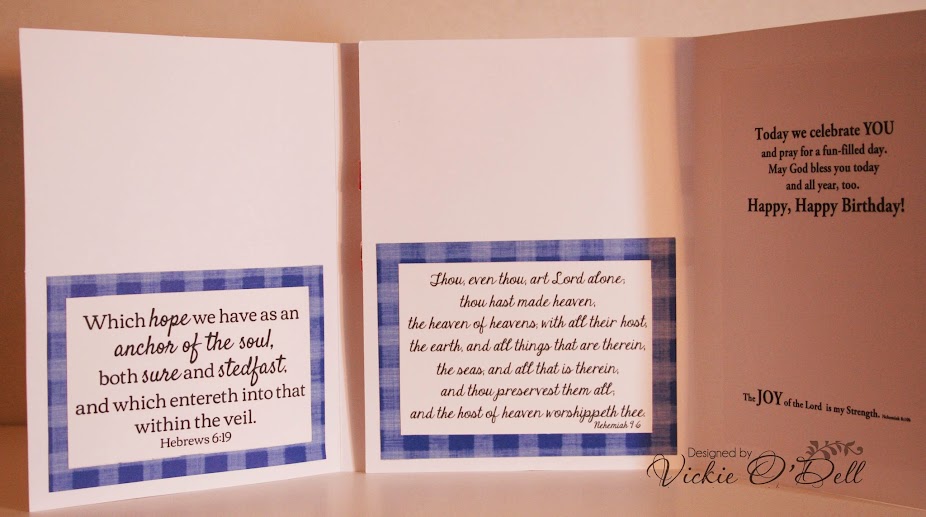 Which hope we have as an
anchor of the soul,
both sure and stedfast,
and which entereth into that
within the veil.
Hebrews 6:19
Thou, even thou, art Lord alone;
thou hast made heaven,
the heaven of heavens, with all their host,
the earth, and all things that are therein,
the seas, and all that is therein,
and thou preservest them all;
and the host of heaven worshippeth thee.
Nehemiah 9:6
Today we celebrate YOU
and pray for a fun-filled day.
May God bless you today
and all year, too.
Happy, Happy Birthday!
The JOY of the Lord is my Strength. Nehemiah 8:10b
Designed by
Vickie O'Dell